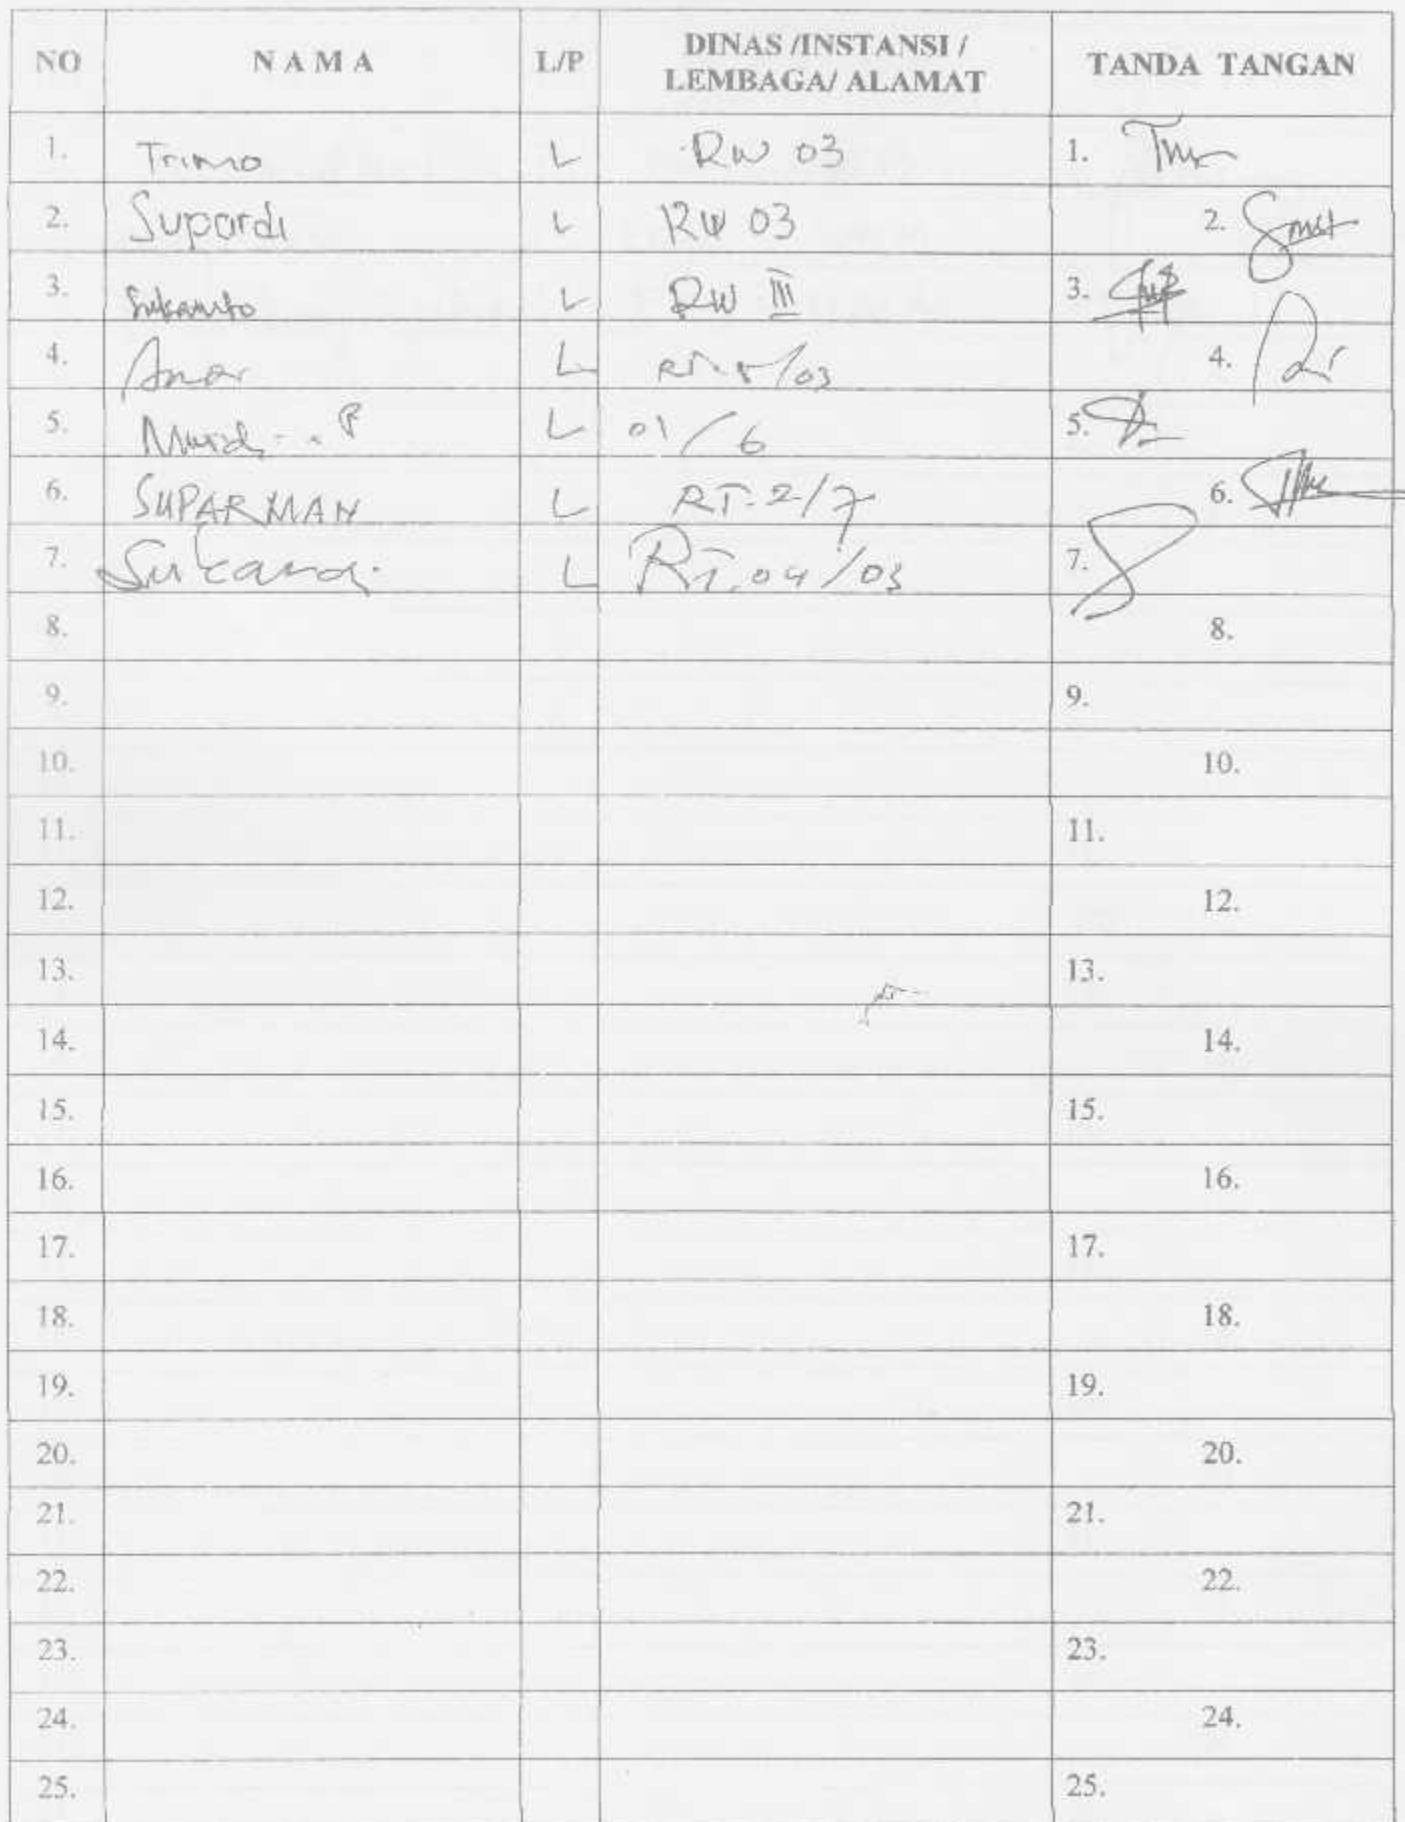 NO N A M A L/P DINAS /INSTANSI / LEMBAGA/ ALAMAT TANDA TANGAN
1. Trimo L RW 03 1.
2. Supardi L RW 03 2.
3. Sukamto L RW III 3.
4. L 4.
5. L 01/6 5.
6. SUPARMAN L RT. 2/7 6.
7. Sukandi L RT. 04/03 7.
8. 8.
9. 9.
10. 10.
11. 11.
12. 12.
13. 13.
14. 14.
15. 15.
16. 16.
17. 17.
18. 18.
19. 19.
20. 20.
21. 21.
22. 22.
23. 23.
24. 24.
25. 25.